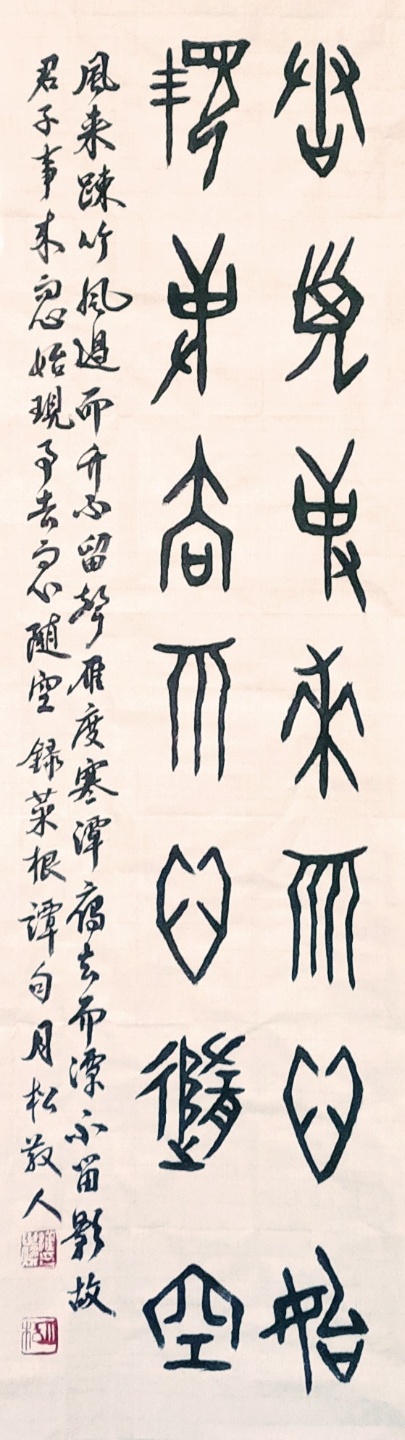 君子事来而心始
現事去而心隨空
風来踈竹風過而竹不留聲雁度寒潭雁去而潭不留影故
君子事来而心始現事去而心随空 録菜根譚句 月松散人